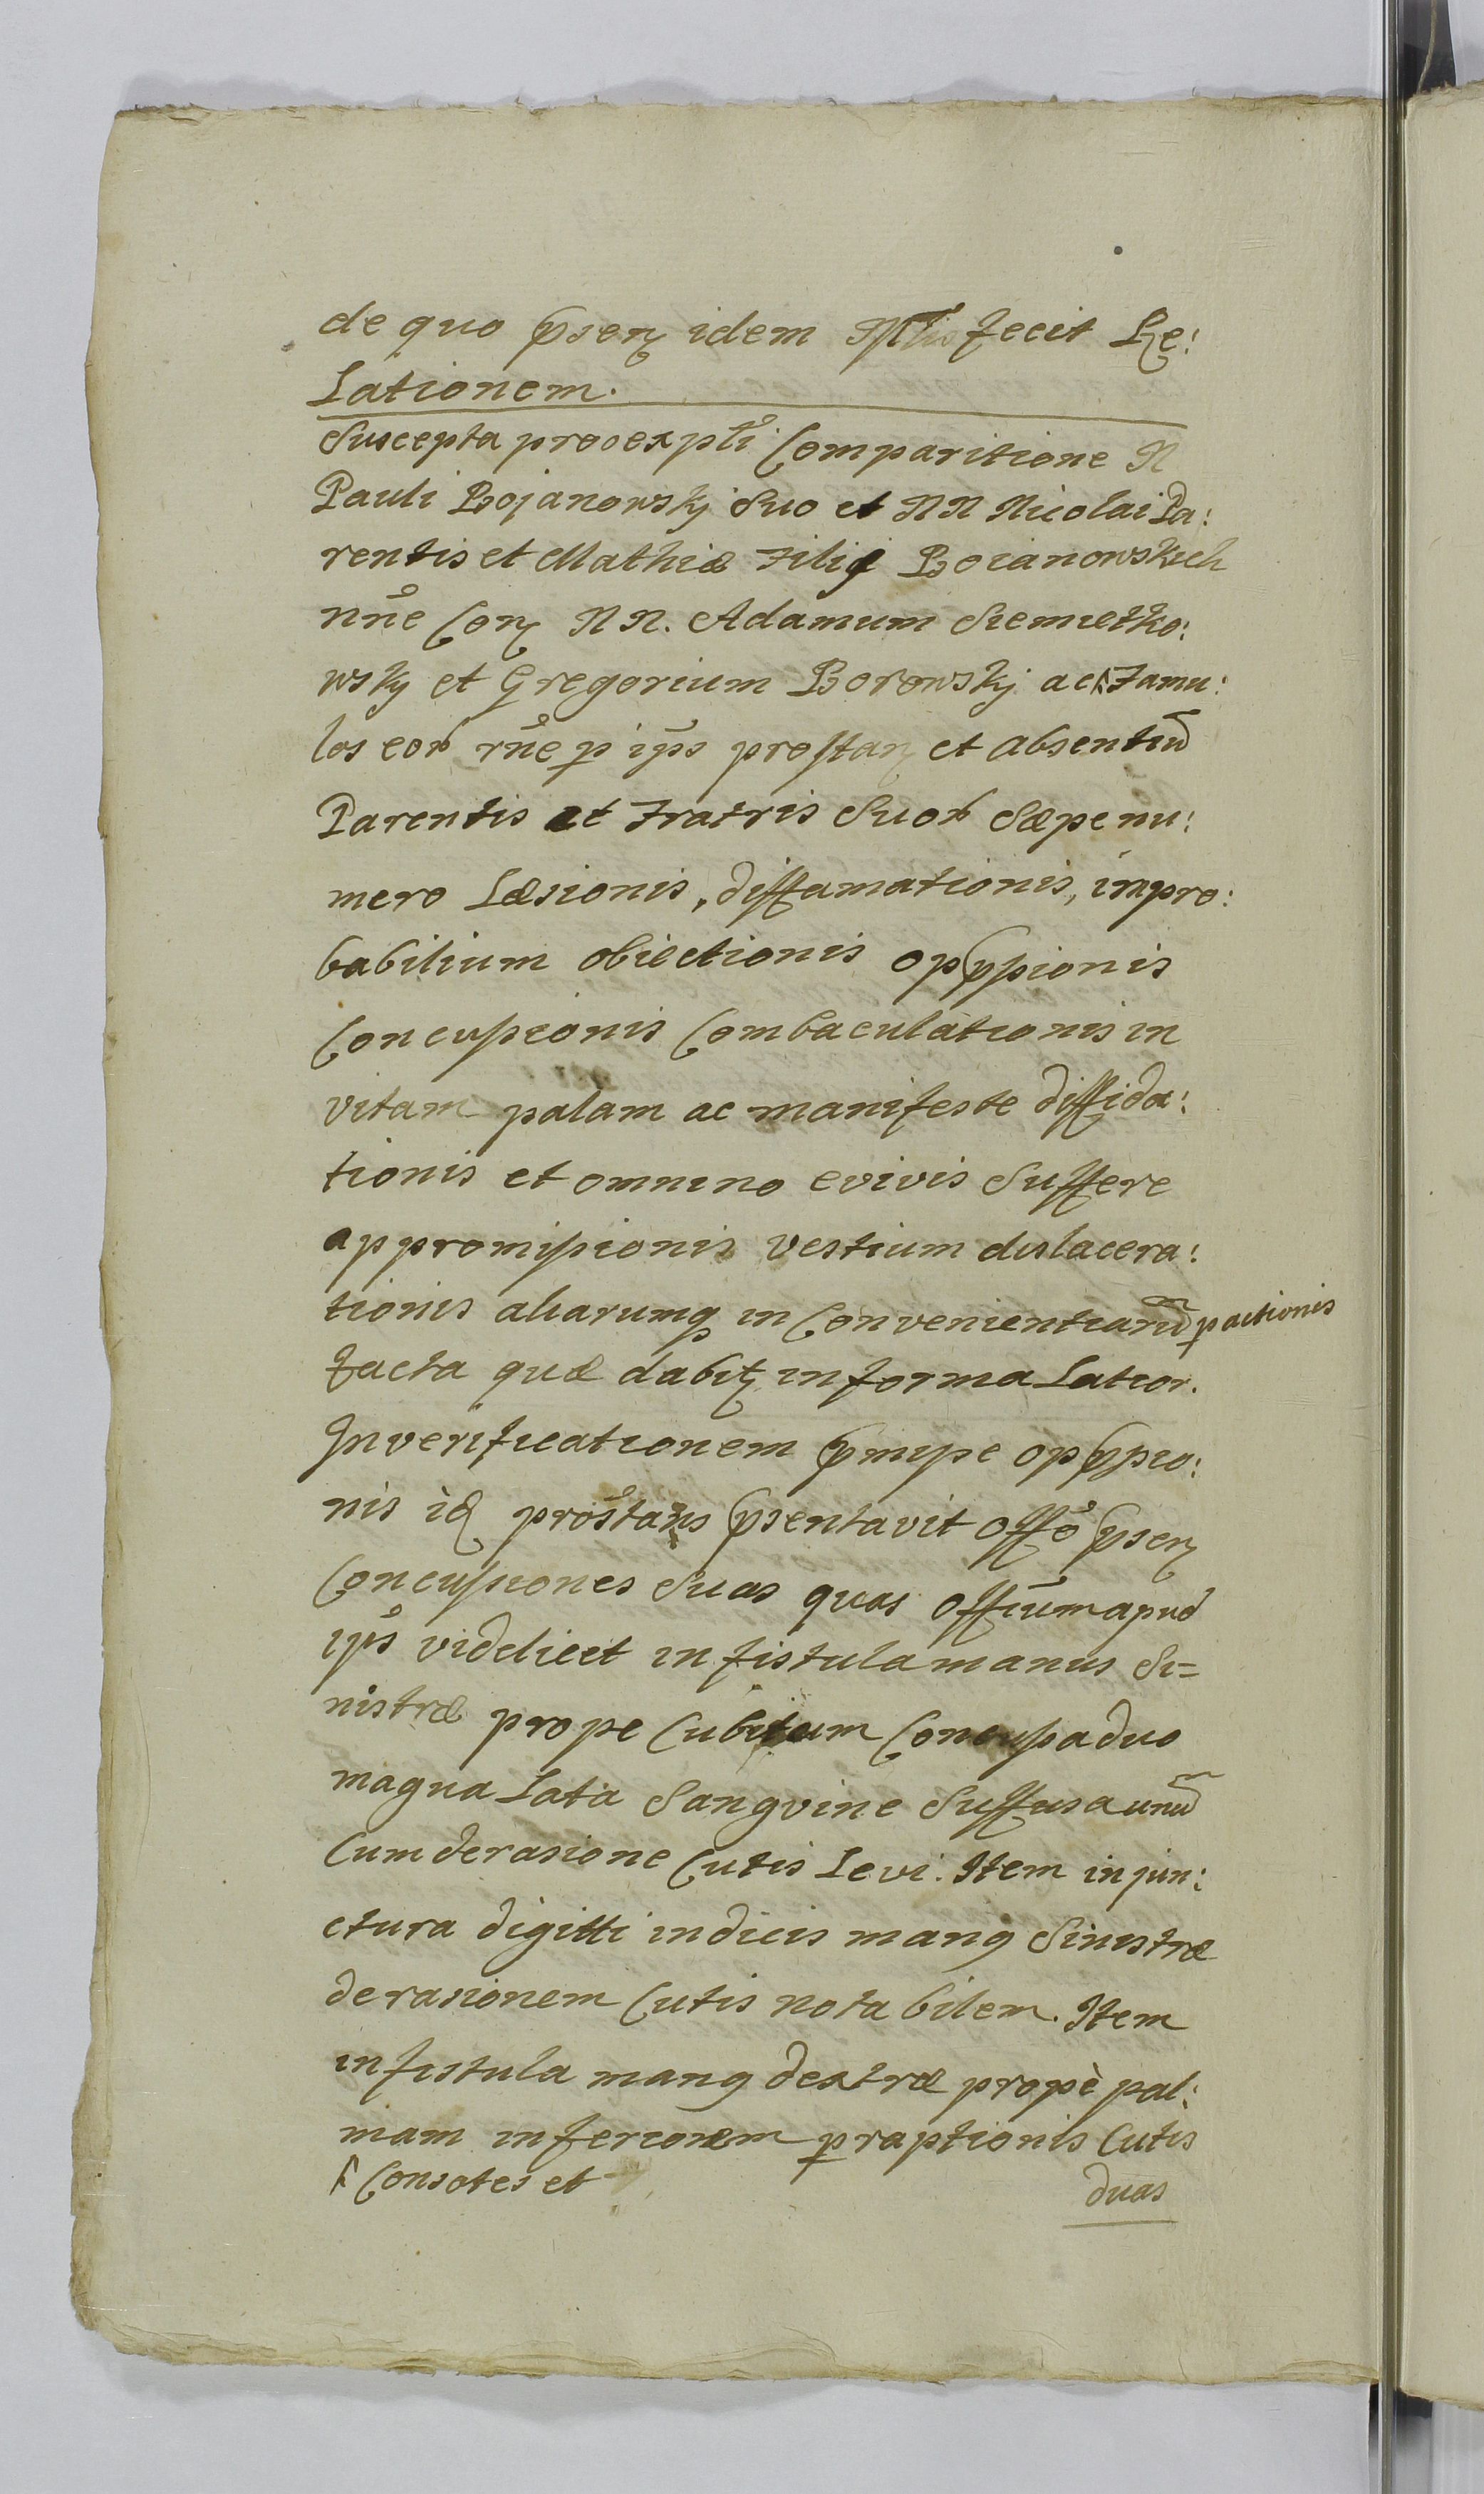 de quo psen idem Mlis fecit Re:
lationem.
Suscepta pro expti Comparitione N
Pauli Bojanowskj Suo et NN Nicolai Pa:
rentis et Mathiæ Filij Boianowskich
nne Con NN. Adamum Siemietko:
wsky et Gregorium Borowskj ac Famu:
los eor rne p ips prostan et absentiū
Parentis et Fratris Suor Sæpe nu:
mero Læsionis, diffamationis, impro:
babilium obiectionis oppssionis
Concussionis Combaculationis in
vitam palam ac manifeste diffida:
tionis et omnino e vivis Sufferre
appromissionis vestium dislacera:
tionis aliarumq in Convenientiarū pactionis
facta quæ dabit in forma Latior.
In verificationem pmisse oppssio:
nis id prostans psentavit offo psen
Concussiones Suas quas offium apud
ips videlicet in fistula manus Si=
nistræ prope Cubitum Concussa duo
magna Lata Sangvine Suffusa unū
Cum derasione Cutis Levi. Item in jun:
ctura digitti indicis manq Sinistræ
derasionem Cutis notabilem. Item
in fistula manq dextræ propè pal:
mam inferiorem praptionis Cutis
Consotes et
duas